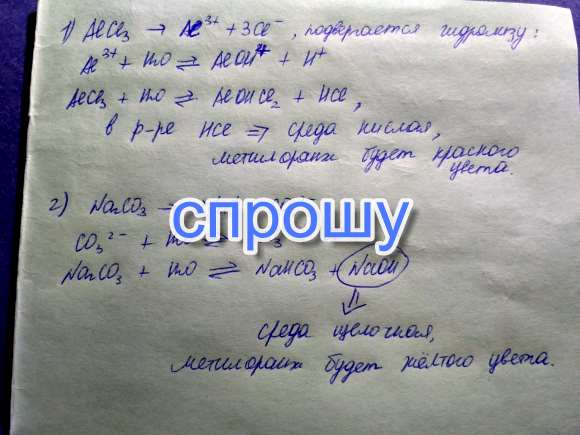 1) AlCl₃ → Al³⁺ + 3Cl⁻, подвергается гидролизу:
Al³⁺ + H₂O ⇌ AlOH²⁺ + H⁺
AlCl₃ + H₂O ⇌ AlOHCl₂ + HCl,
в р-ре HCl => среда кислая,
метилоранж будет красного
цвета.
2) Na₂CO₃ →
спрошу
CO₃²⁻ + H₂O ⇌
Na₂CO₃ + H₂O ⇌ NaHCO₃ + NaOH
среда щелочная,
метилоранж будет жёлтого цвета.